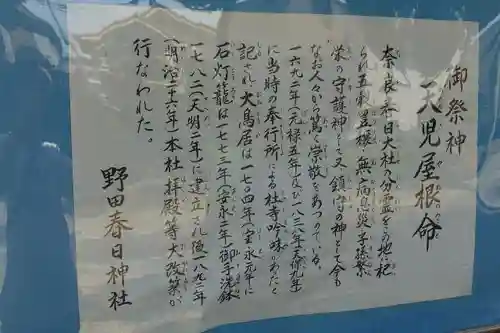 御祭神
天児屋根命
奈良春日大社の分霊をこの地に祀
られ五穀豊穣・無病息災・子孫繁
栄の守護神として又、鎮守の神として今も
なお人々から篤く崇敬をあつめている。
一六九二年(元禄五年)及び一八三八年(天保九年)
に当時の奉行所による社寺吟味があたく
記され、大鳥居は一七〇四年(宝永元年)に
石灯籠は一七七三年(安永二年)御手洗鉢
一七八二(天明二年)に建立され後一八九三年
(明治二十六年)本社・拝殿等大改築が
行なわれた。
野田春日神社